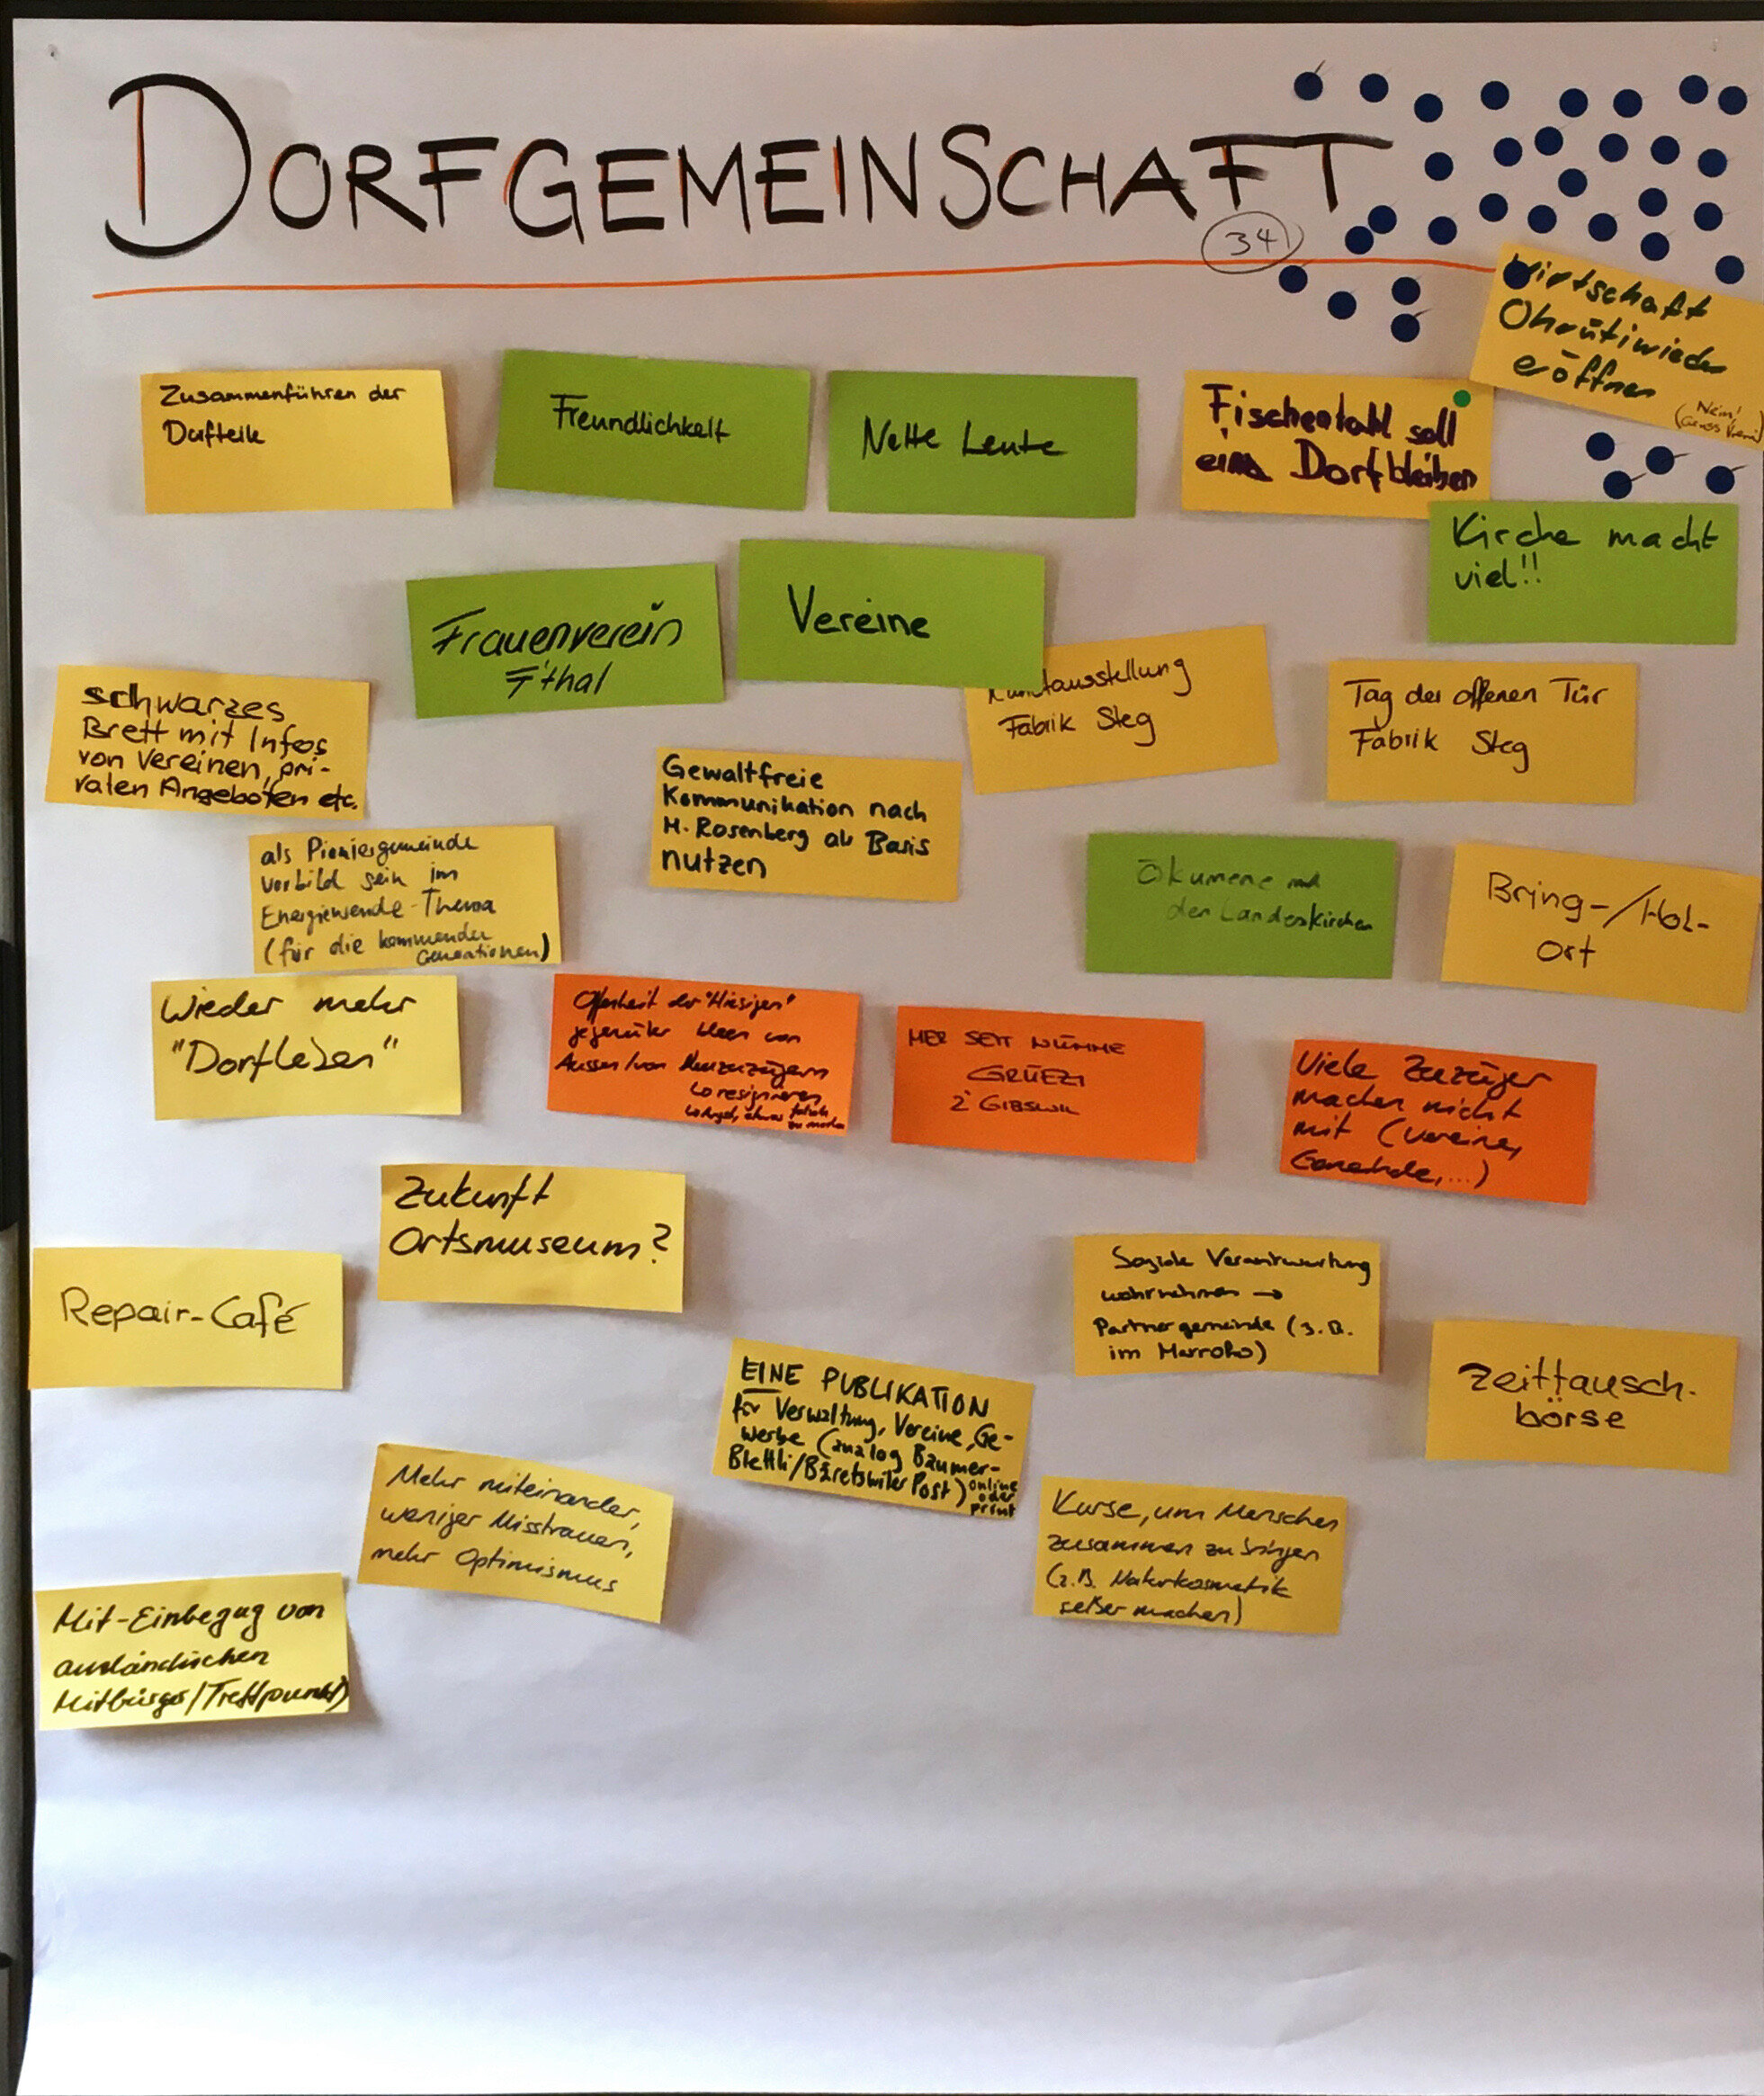 DORFGEMEINSCHAFT
34
Wirtschaft
Ohrüti wieder
eröffnen
(Nein!
Zusammenführen der
Dorfteile
Freundlichkeit
Nette Leute
Fischenthal soll
ein Dorf bleiben
Kirche macht
viel!!
Frauenverein
F'thal
Vereine
schwarzes
Brett mit Infos
von Vereinen, pri-
vaten Angeboten etc.
Kunstausstellung
Fabrik Steg
Tag der offenen Tür
Fabrik Steg
Gewaltfreie
Kommunikation nach
M. Rosenberg als Basis
nutzen
als Pioniergemeinde
Vorbild sein im
Energiewende-Thema
(für die kommenden
Generationen)
Ökumene mit
den Landeskirchen
Bring-/Hol-
Ort
Wieder mehr
"Dorfleben"
Offenheit der "Hiesigen"
gegenüber Ideen von
Aussen/von Neuzuzügern
resignieren
Angst, etwas falsch
zu machen
MER SEIT NÜMME
GRÜEZI
Z' GIBSWIL
Viele Zuzüger
machen nicht
mit (Vereine,
Gemeinde,...)
Zukunft
Ortsmuseum?
Repair-Café
Soziale Verantwortung
wahrnehmen →
Partnergemeinde (z.B.
im Marroko)
EINE PUBLIKATION
für Verwaltung, Vereine, Ge-
werbe (analog Baumer-
Blettli/Bäretswiler Post) online
oder
print
Zeittausch-
börse
Mehr miteinander,
weniger Misstrauen,
mehr Optimismus
Kurse, um Menschen
zusammen zu bringen
(z.B. Naturkosmetik
selber machen)
Mit-Einbezug von
ausländischen
Mitbürger/Treffpunkt)